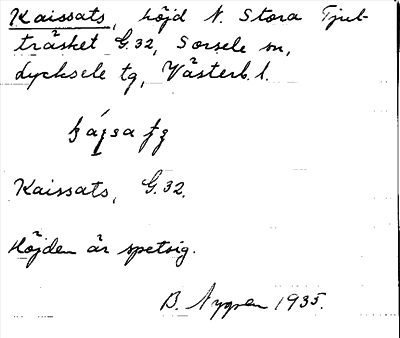 Kaissats, höjd N. Stora Tjut-
träsket G.32, Sorsele sn,
Lycksele tg, Västerb. l.
Kaissats, G.32.
Höjden är spetsig.
B. Nygren 1935.